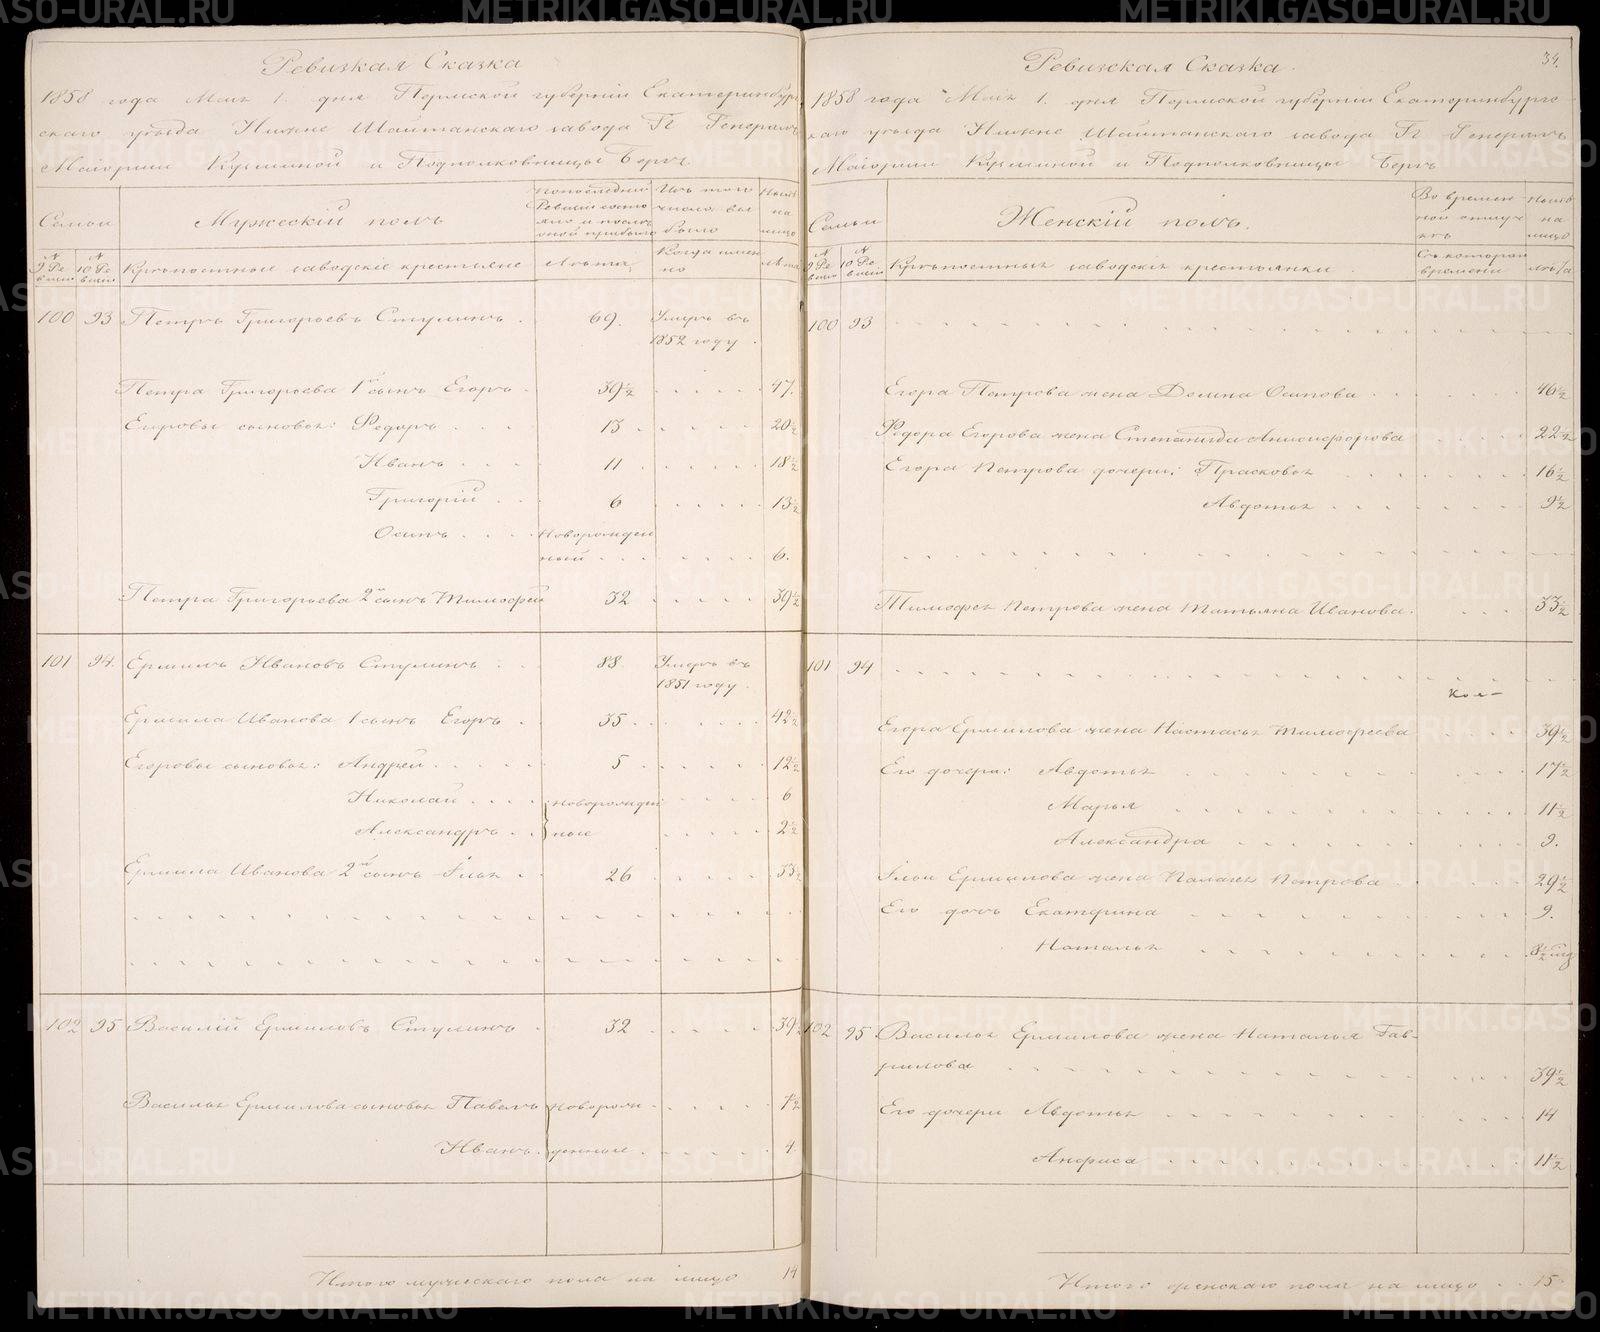 Ревизкая Сказка
1858 года Маія 1. дня Пермской губерніи Екатеринбург-
скаго уѣзда Нижне Шайтанскаго завода Гг. Генералъ
Маіорши Кузминой и Подполковницы Бергъ.
Семьи
Мужескій полъ
По последней Ревизіи состояло и после оной прибыло
Изъ того числа выбыло
Нынѣ на лицо
№ 9 Ревизіи
№ 10 Ревизіи
Крѣпостные заводскіе крестьяне
Лѣта
Когда именно
Лѣта
100 93 Петръ Григорьевъ Ступинъ. 69. Умеръ въ
1852 году.
Петра Григорьева 1й сынъ Егоръ 39½ 47.
Егоровы сыновья: Федоръ 13 20½
Иванъ 11 18½
Григорій 6 13½
Осипъ Новорожден
ный 6.
Петра Григорьева 2й сынъ Тимофей 32 39½
101 94. Ермилъ Ивановъ Ступинъ 88 Умеръ въ
1851 году.
Ермила Иванова 1 сынъ Егоръ 35 42½
Егоровы сыновья: Андрей 5 12½
Николай новорожден 6
Александръ ные 2½
Ермила Иванова 2й сынъ Илья 26 33½
102 95 Василій Ермиловъ Ступинъ 32 39½
Василья Ермилова сыновья Павелъ Новорож 7½
Иванъ денные 4
Итого мужескаго пола на лицо 14
34.
Ревизская Сказка.
1858 года Маія 1. дня Пермской губерніи Екатеринбургс-
каго уѣзда Нижне Шайтанскаго завода Гг. Генералъ
Маіорши Кузминой и Подполковницы Бергъ
Семьи
Женскій полъ.
Во временной отлучкѣ
Нынѣ на лицо
№ 9 Ревизіи
№ 10 Ревизіи
Крѣпостныя заводскія крестьянки.
Съ котораго времени
Лѣта
100 93
Егора Петрова жена Домна Осипова 46½
Федора Егорова жена Степанида Аникифорова 22½
Егора Петрова дочери: Прасковья 16½
Авдотья 9½
Тимофея Петрова жена Татьяна Иванова. 33½
101 94
Егора Ермилова жена Настасья Тимофеева 39½
Его дочери: Авдотья 17½
Марья 11½
Александра 9.
Ильи Ермилова жена Палагея Петрова 29½
Его дочь Екатерина 9.
Наталья
102 95 Василья Ермилова жена Наталья Гав-
рилова 39½
Его дочери Авдотья 14
Анфиса 11½
Итого женскаго пола на лицо 15
METRIKI.GASO-URAL.RU